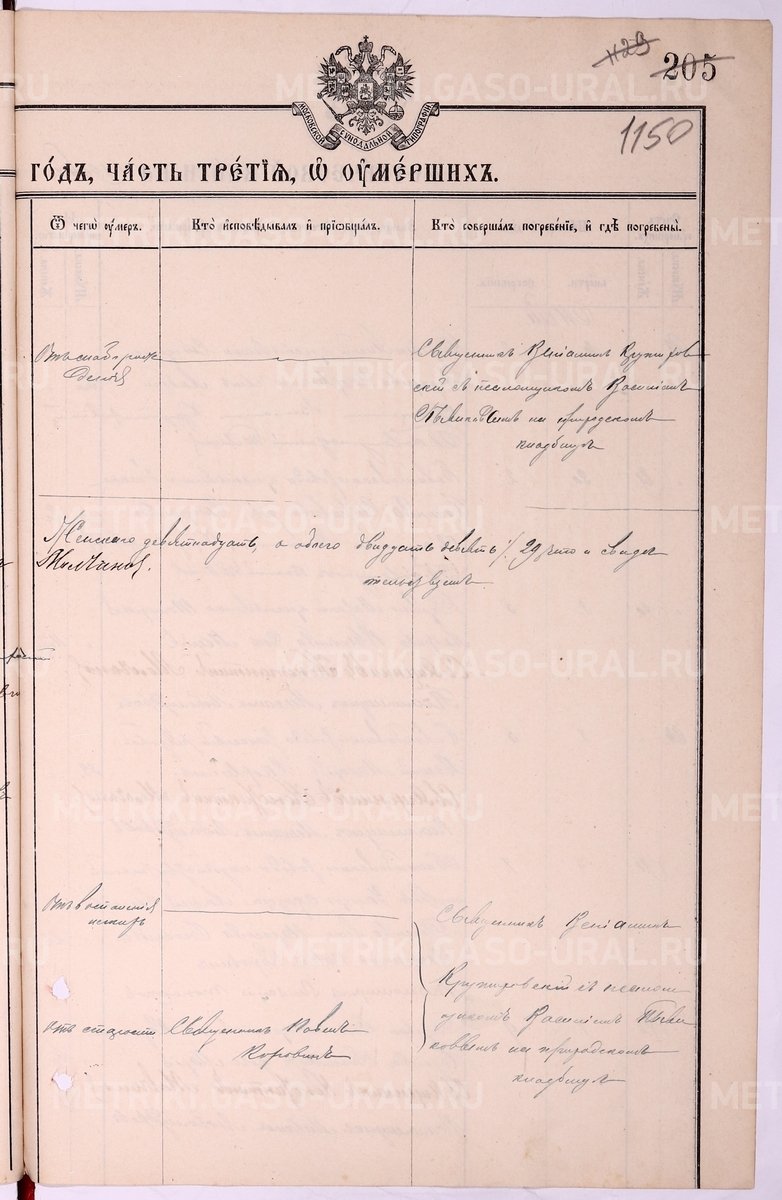 1129
205
МОСКОВСКОЙ СѴНОДАЛЬНОЙ ТИПОГРАФІИ
1150
ГО́ДЪ, ЧА́СТЬ ТРЕ́ТІѦ, Ѡ҆ ОУ҆МЕ́РШИХЪ.
Ѿ чегѡ̀ оу҆́меръ.
Кто̀ и҆сповѣ́дывалъ и҆ прїѡбща́лъ.
Кто̀ соверша́лъ погребе́нїе, и҆ гдѣ̀ погребены̀.
Отъ слабо рож
денія
Священникъ Веніаминъ
скій съ псаломщикомъ Василіемъ
на приходскомъ
кладбищѣ
Женскаго девятнадцать, а обоего двадцать девять /29/ что и свидѣ
тельствуемъ
Отъ воспаленія
Священникъ Веніаминъ
скій съ псалом
щикомъ Василіемъ
на приходскомъ
кладбищѣ
отъ старости
Священникъ Павелъ
Коровинъ
METRIKI.GASO-URAL.RU